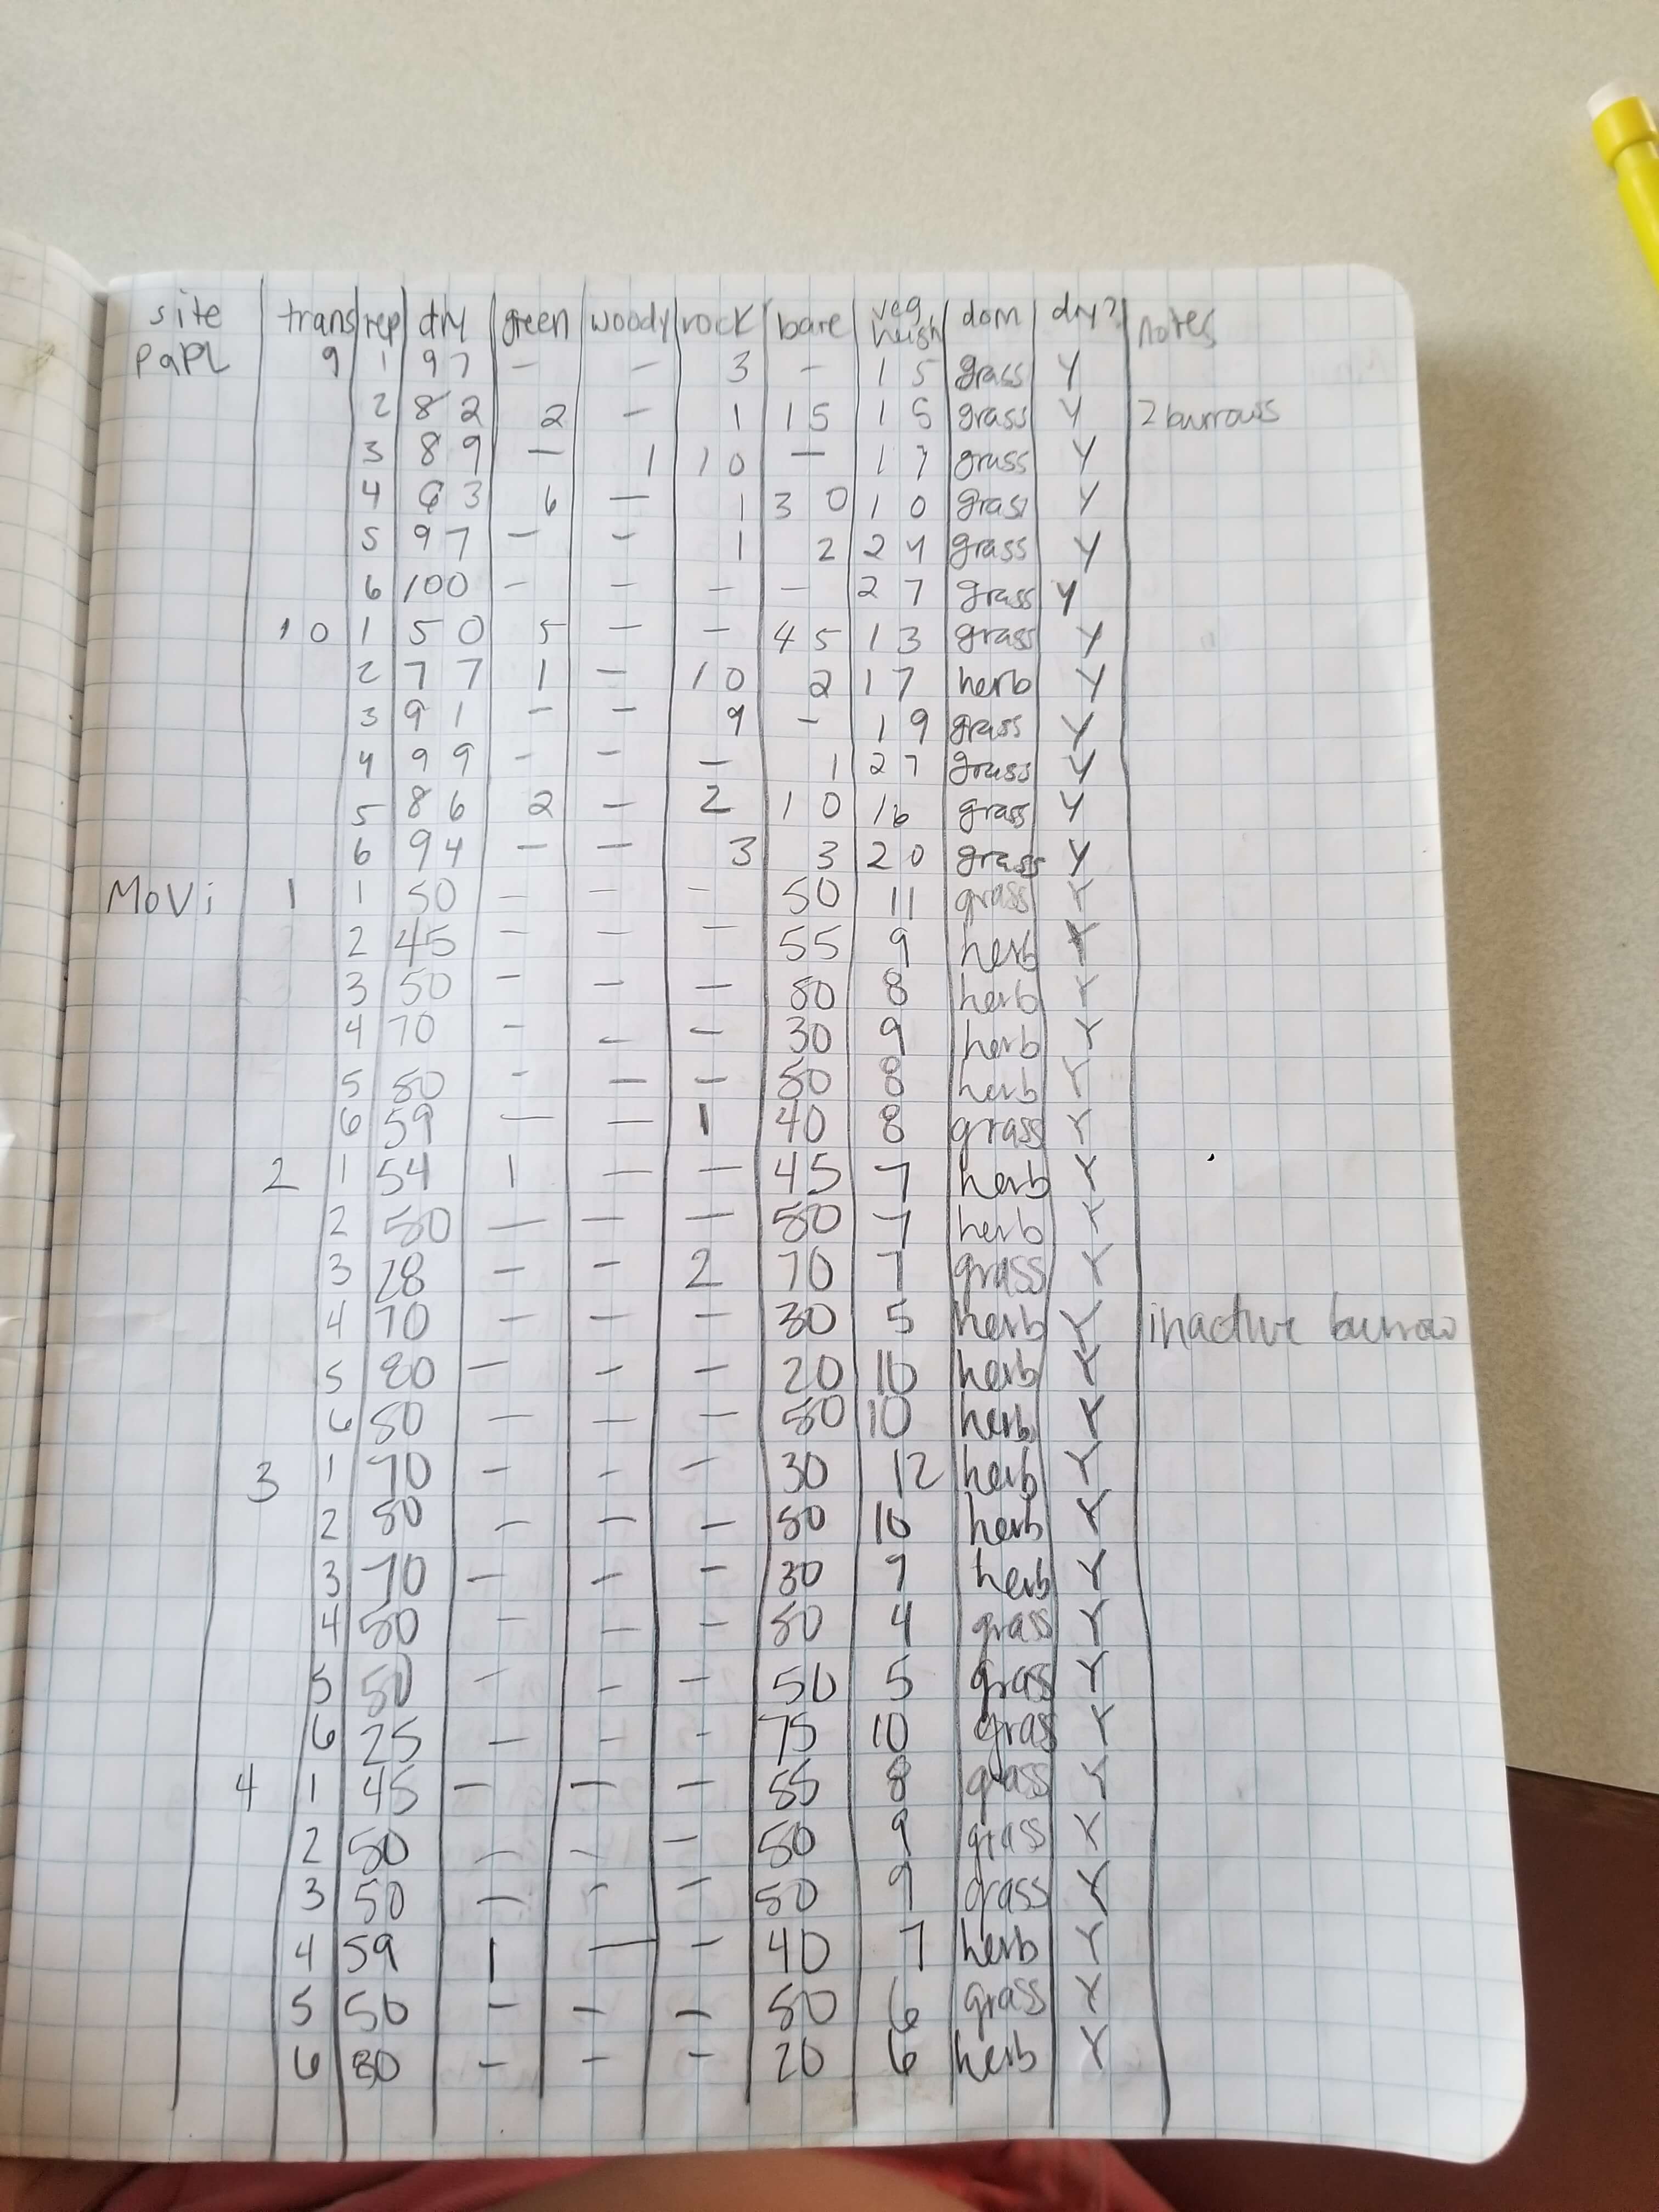 site trans rep dry green woody rock bare veg heigh dom dry? notes
PaPL 9 1 97 - - 3 - 15 grass Y
2 82 2 - 1 15 15 grass Y 2 burrows
3 89 - 1 10 - 17 grass Y
4 63 6 - 1 30 10 grass Y
5 97 - - 1 2 24 grass Y
6 100 - - - - 27 grass Y
10 1 50 5 - - 45 13 grass Y
2 77 1 - 10 2 17 herb Y
3 91 - - 9 - 19 grass Y
4 99 - - - 1 27 grass Y
5 86 2 - 2 10 16 grass Y
6 94 - - 3 3 20 grass Y
MoVi 1 1 50 - - - 50 11 grass Y
2 45 - - - 55 9 herb Y
3 50 - - - 50 8 herb Y
4 70 - - - 30 9 herb Y
5 50 - - - 50 8 herb Y
6 59 - - 1 40 8 grass Y
2 1 54 1 - - 45 7 herb Y
2 50 - - - 50 7 herb Y
3 28 - - 2 70 7 grass Y
4 70 - - - 30 5 herb Y inactive burrow
5 80 - - - 20 10 herb Y
6 50 - - - 50 10 herb Y
3 1 70 - - - 30 12 herb Y
2 50 - - - 50 10 herb Y
3 70 - - - 30 9 herb Y
4 50 - - - 50 4 grass Y
5 50 - - - 50 5 grass Y
6 25 - - - 75 10 grass Y
4 1 45 - - - 55 8 grass Y
2 50 - - - 50 9 grass Y
3 50 - - - 50 9 grass Y
4 59 1 - - 40 7 herb Y
5 50 - - - 50 6 grass Y
6 80 - - - 20 6 herb Y